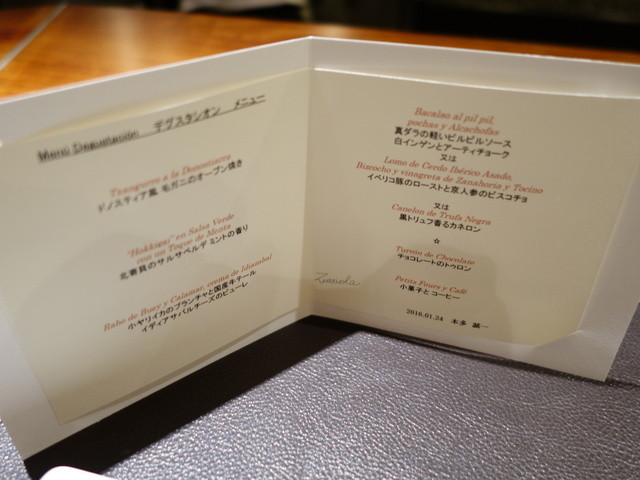 Menú Degustación デグスタシオン メニュー
Txangurro a la Donostiarra
ドノスティア風 毛ガニのオーブン焼き
"Hokkigai" en Salsa Verde
con un Toque de Menta
北寄貝のサルサベルデ ミントの香り
Rabo de Buey y Calamar, crema de Idiazabal
小ヤリイカのプランチャと国産牛テール
イディアサバルチーズのピューレ
Bacalao al pil pil,
pochas y Alcachofas
真ダラの軽いピルピルソース
白インゲンとアーティチョーク
又は
Lomo de Cerdo Ibérico Asado,
Bizcocho y vinagreta de Zanahoria y Tocino
イベリコ豚のローストと京人参のビスコチョ
又は
Canelon de Trufa Negra
黒トリュフ香るカネロン
☆
Turrón de Chocolate
チョコレートのトゥロン
Petits Fours y Café
小菓子とコーヒー
Zurriola
2016.01.24 本多 誠一